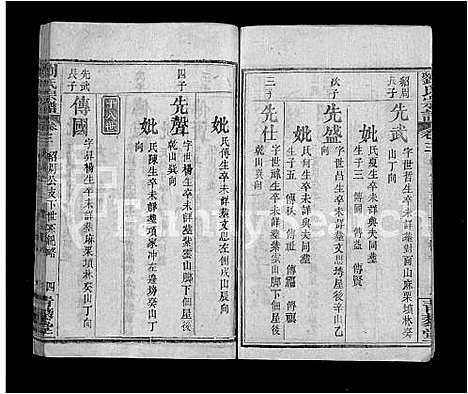 劉氏宗譜
卷三
紹周
長子
先武
字世哲生卒未詳葬對面山麻栗墳林癸
山丁向
妣
氏夏生卒未詳與夫同塋
生子三 傳國 傳爵 傳賢
次子
先盛
字世昌生卒未詳葬文思塆屋後皁山乙
向
妣
氏何生卒未詳與夫同塋
生子五 傳 傳益 傳
三子
先仕
字世 生卒未詳葬雲山脚下個屋後
乾山巽向
妣
氏傅生卒未詳葬文思左側戌山辰向
四子
先聲
字世楊生卒未詳葬雲山脚下個屋後
乾山向
妣
氏陳生卒未詳葬項家冲左邊塝癸山丁
向
十八世
先武
長子
傳國
字昇楊生卒未詳葬麻栗墳林癸山丁向
劉氏宗譜
卷三
紹周公政下世系總略
四
青藜堂
青藜堂